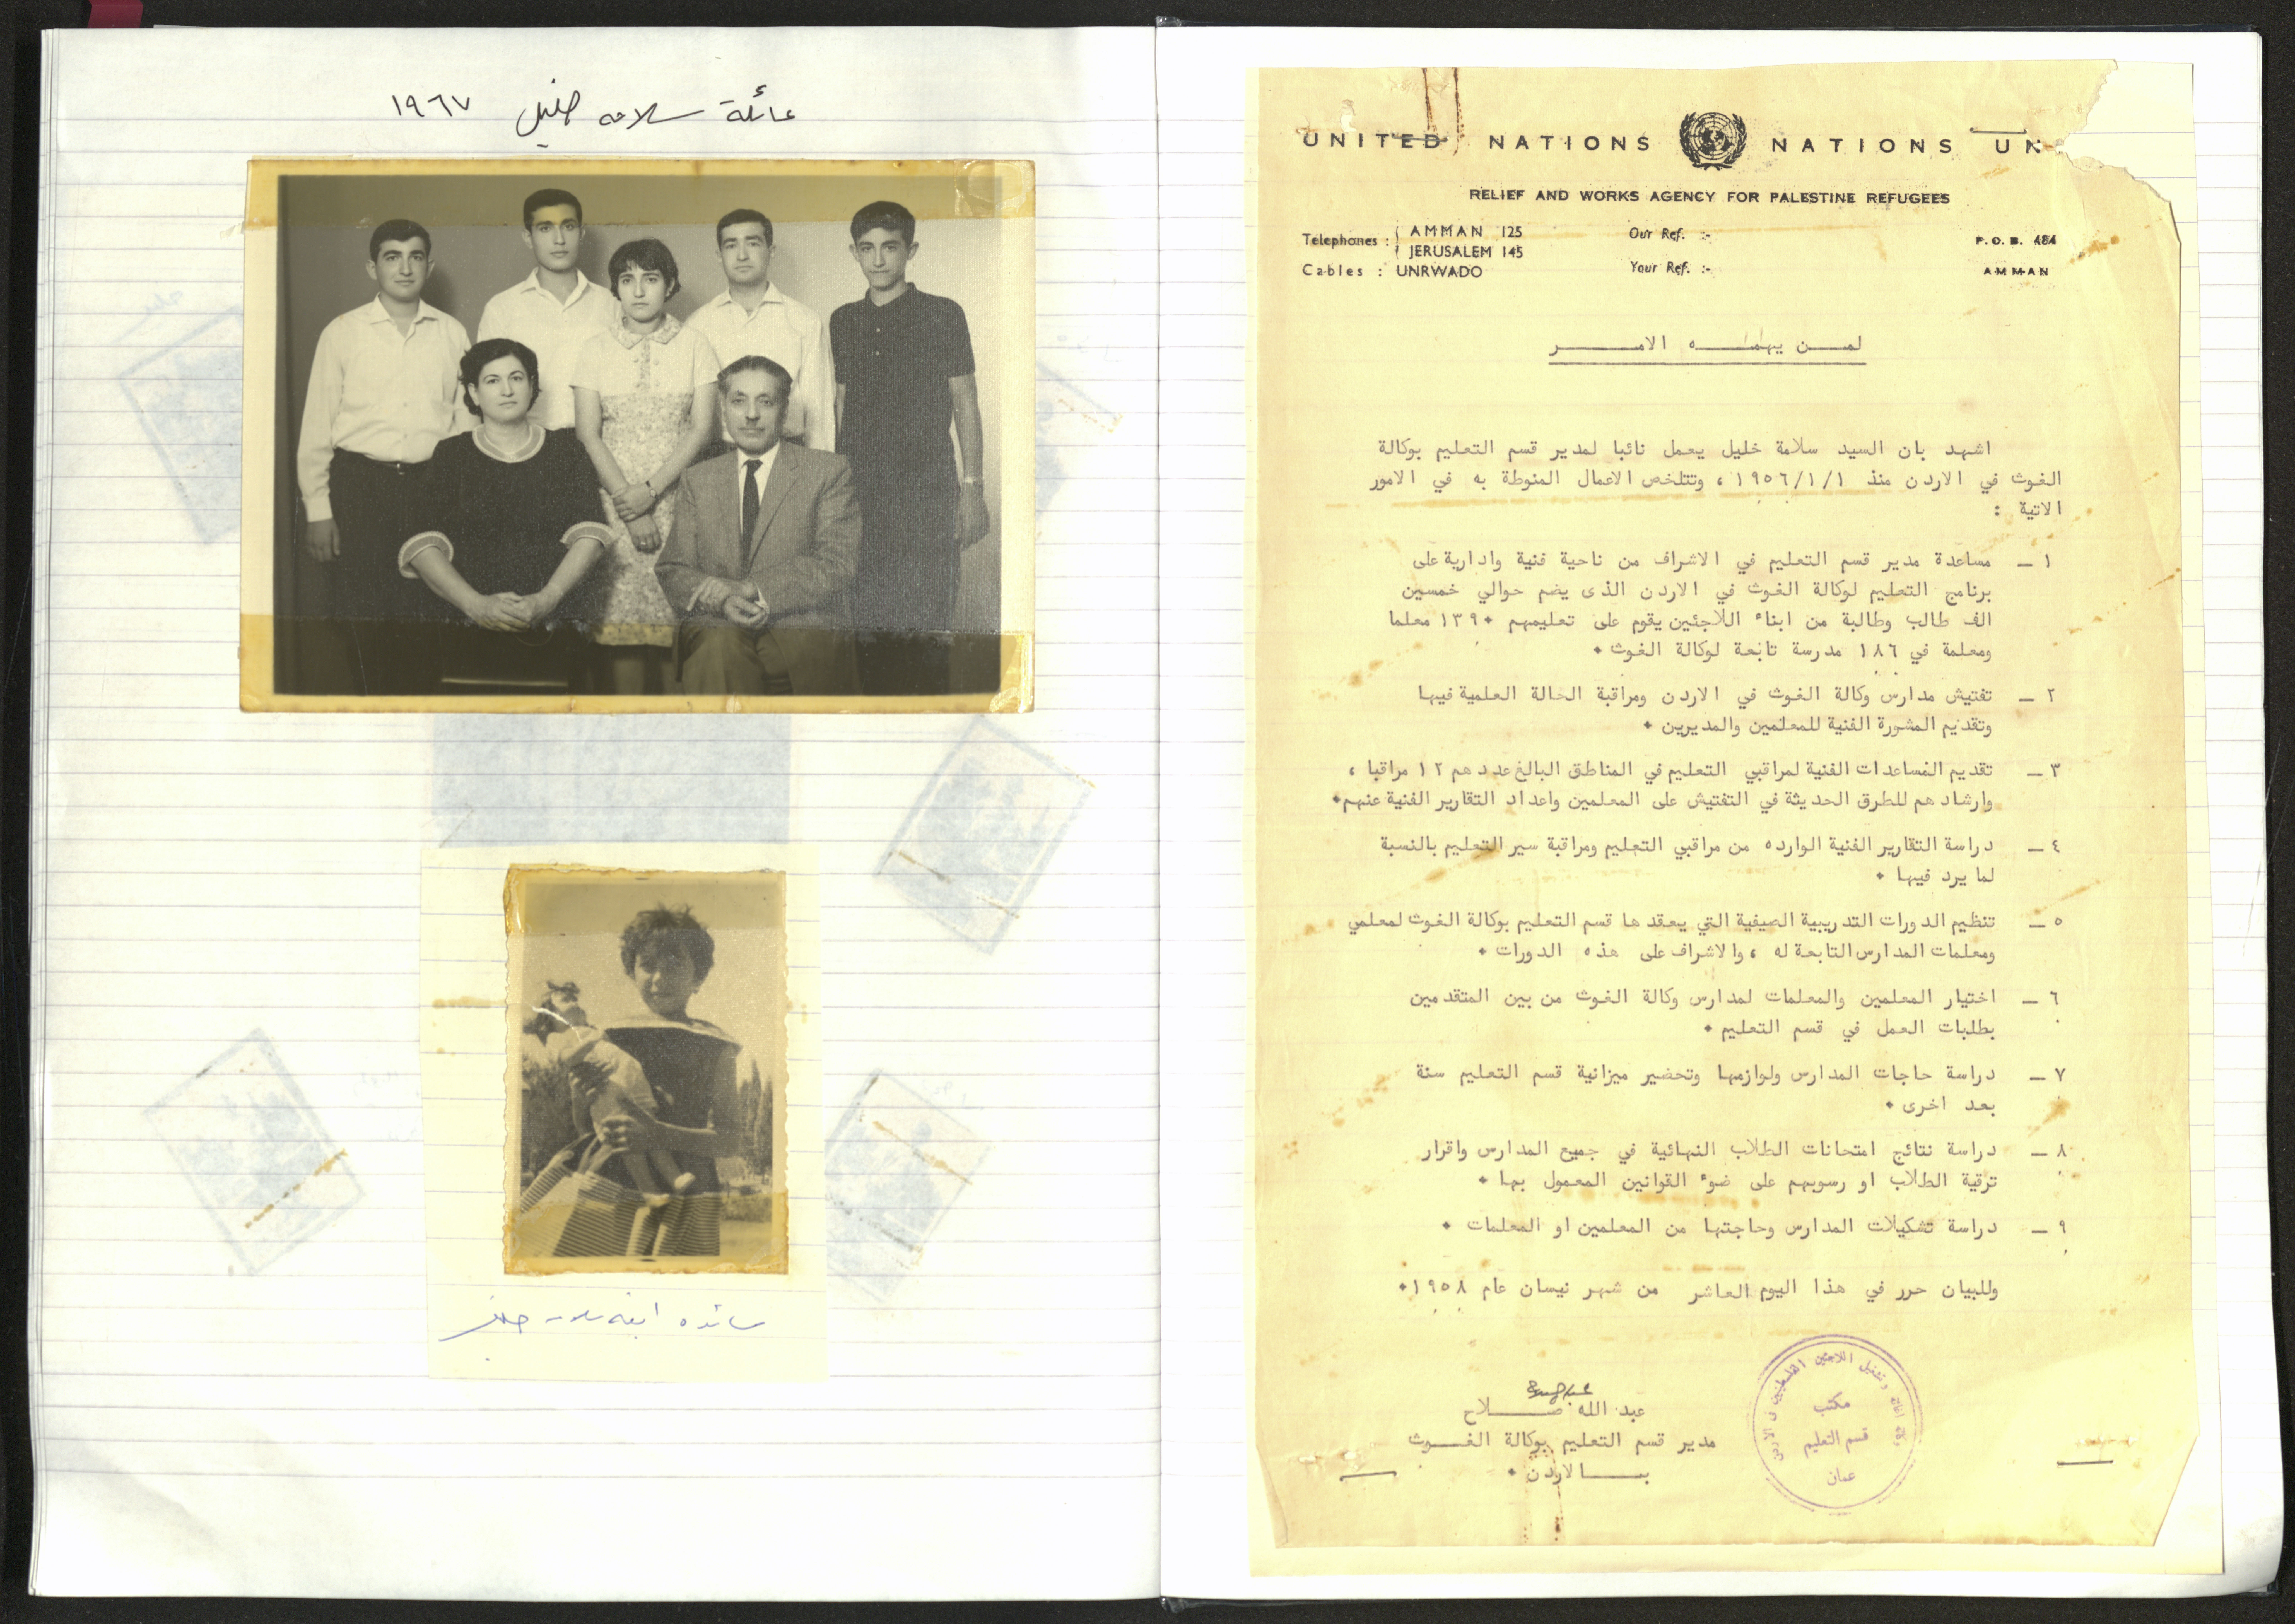 عائلة سلامه خليل ١٩٦٧
سائده ابنة سلامه خليل
UNITED NATIONS NATIONS UN
RELIEF AND WORKS AGENCY FOR PALESTINE REFUGEES
Telephones : AMMAN 125
JERUSALEM 145
Cables : UNRWADO
Our Ref. :-
Your Ref. :-
P.O.B. 484
AMMAN
لمن يهمه الامر
اشهد بان السيد سلامة خليل يعمل نائبا لمدير قسم التعليم بوكالة
الغوث في الاردن منذ ١/١/١٩٥٦ ، وتتلخص الاعمال المنوطة به في الامور
الاتية :
١ – مساعدة مدير قسم التعليم في الاشراف من ناحية فنية وادارية على
برنامج التعليم لوكالة الغوث في الاردن الذى يضم حوالي خمسين
الف طالب وطالبة من ابناء اللاجئين يقوم على تعليمهم ١٣٩٠ معلما
ومعلمة في ١٨٦ مدرسة تابعة لوكالة الغوث ٠
٢ – تفتيش مدارس وكالة الغوث في الاردن ومراقبة الحالة العلمية فيها
وتقديم المشورة الفنية للمعلمين والمديرين ٠
٣ – تقديم المساعدات الفنية لمراقبي التعليم في المناطق البالغ عددهم ١٢ مراقبا ،
وارشادهم للطرق الحديثة في التفتيش على المعلمين واعداد التقارير الفنية عنهم ٠
٤ – دراسة التقارير الفنية الوارده من مراقبي التعليم ومراقبة سير التعليم بالنسبة
لما يرد فيها ٠
٥ – تنظيم الدورات التدريبية الصيفية التي يعقدها قسم التعليم بوكالة الغوث لمعلمي
ومعلمات المدارس التابعة له ، والاشراف على هذه الدورات ٠
٦ – اختيار المعلمين والمعلمات لمدارس وكالة الغوث من بين المتقدمين
بطلبات العمل في قسم التعليم ٠
٧ – دراسة حاجات المدارس ولوازمها وتحضير ميزانية قسم التعليم سنة
بعد اخرى ٠
٨ – دراسة نتائج امتحانات الطلاب النهائية في جميع المدارس واقرار
ترقية الطلاب او رسوبهم على ضوء القوانين المعمول بها ٠
٩ – دراسة تشكيلات المدارس وحاجتها من المعلمين او المعلمات ٠
وللبيان حرر في هذا اليوم العاشر من شهر نيسان عام ١٩٥٨ ٠
عبد الله صلاح
مدير قسم التعليم بوكالة الغوث
بالاردن ٠
وكالة اغاثة وتشغيل اللاجئين الفلسطينيين في الاردن
مكتب
قسم التعليم
عمان